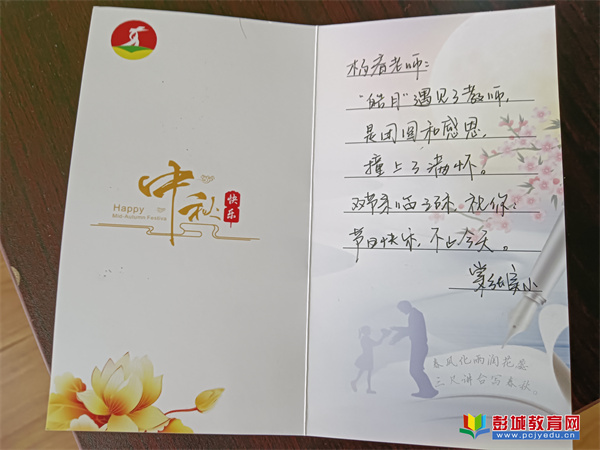 中秋
快乐
Happy
Mid-Autumn Festival
杨春老师：
“皓月”遇见了教师，
是团圆和感恩，
撞上了满怀。
双节来临之际，祝你：
节日快乐，不止今天。
春风化雨润花蕊
三尺讲台写春秋。
彭城教育网
www.pcjyedu.cn